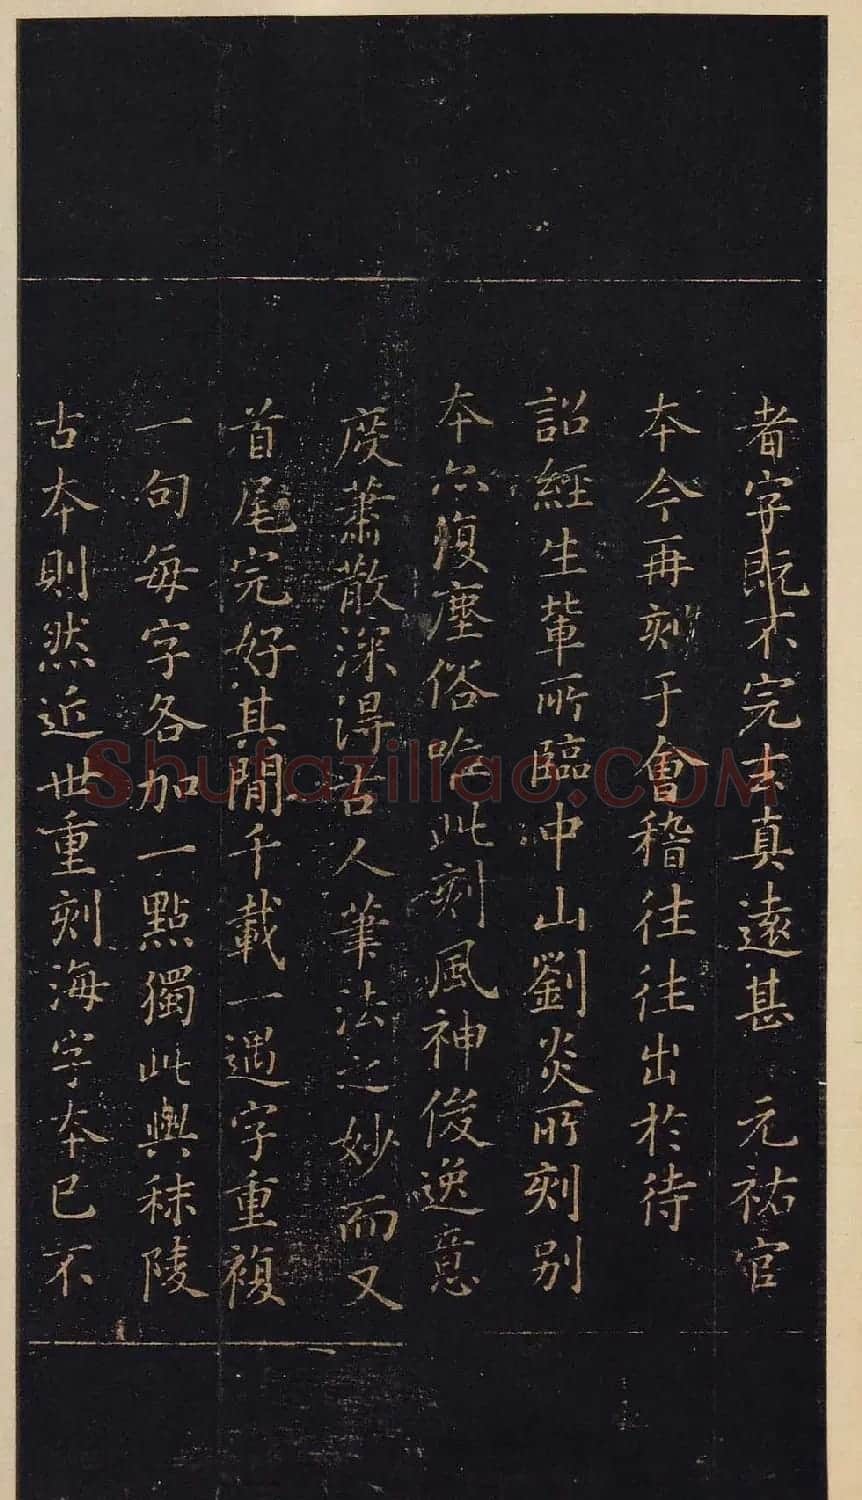 者字既不完去真遠甚 元祐官
本今再刻于會稽往往出於待
詔經生輩所臨中山劉炎所刻別
本亦複塵俗唯此刻風神俊逸意
度蕭散深得古人筆法之妙而又
首尾完好其間千載一遇字重複
一句每字各加一點獨此與秣陵
古本則然近世重刻海字本已不
Shufaziliao.COM